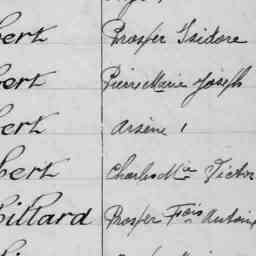 bert Prosper Isidore
bert Pierre Marie Joseph
bert Arsène
bert Charles Mie Victor
Billard Prosper Fçois Antoine